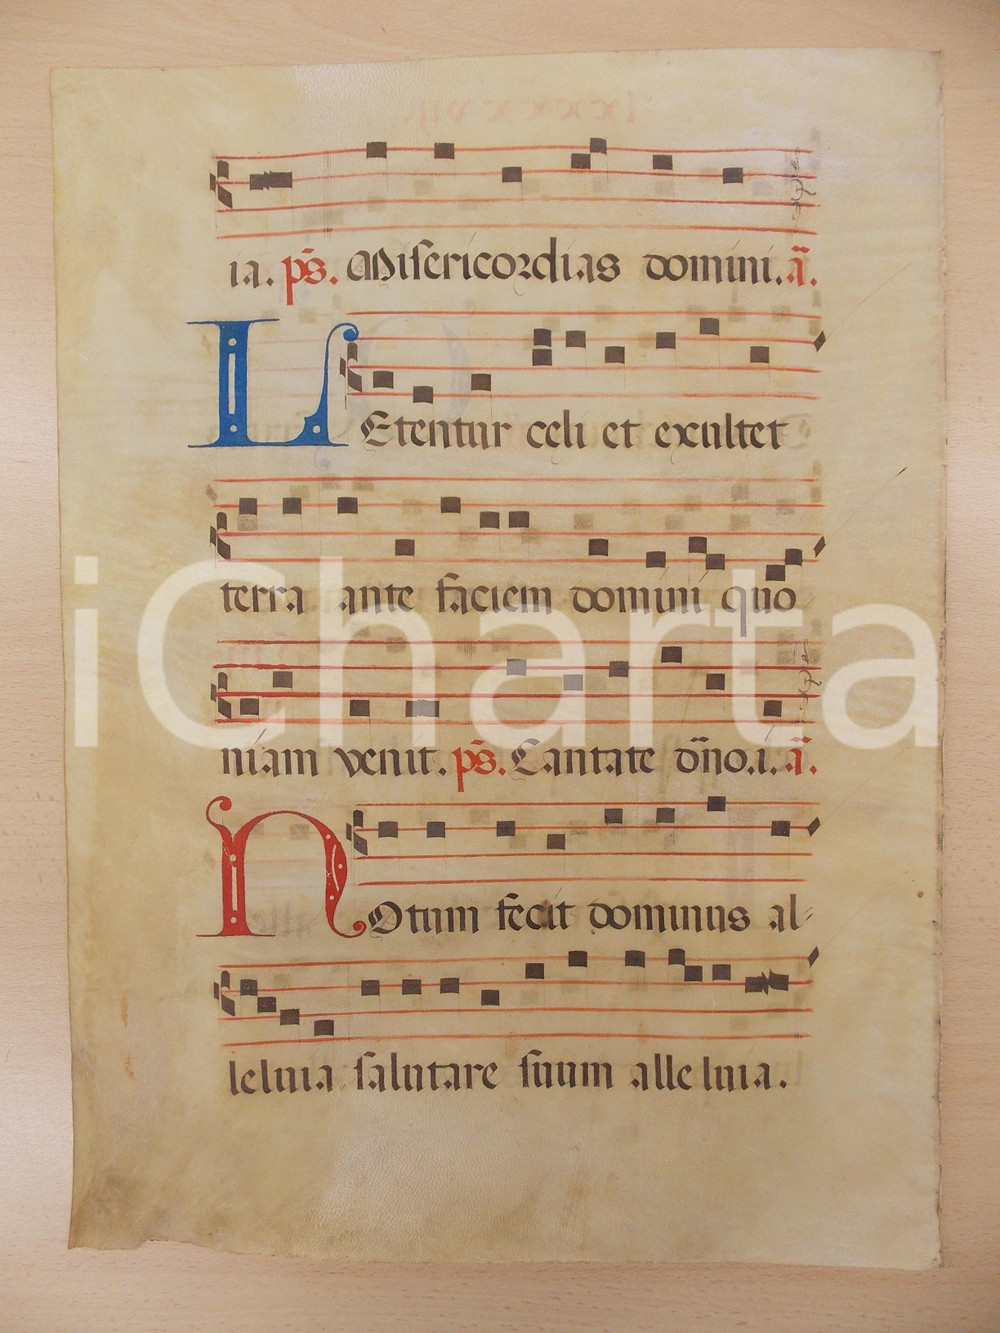 ia. ps̄. Misericordias domini. ā.
LEtentur celi et exultet
terra ante faciem domini quo
niam venit. ps̄. Cantate dn̄o. i. ā.
NOtum fecit dominus al-
leluia salutare suum alleluia.
iCharta